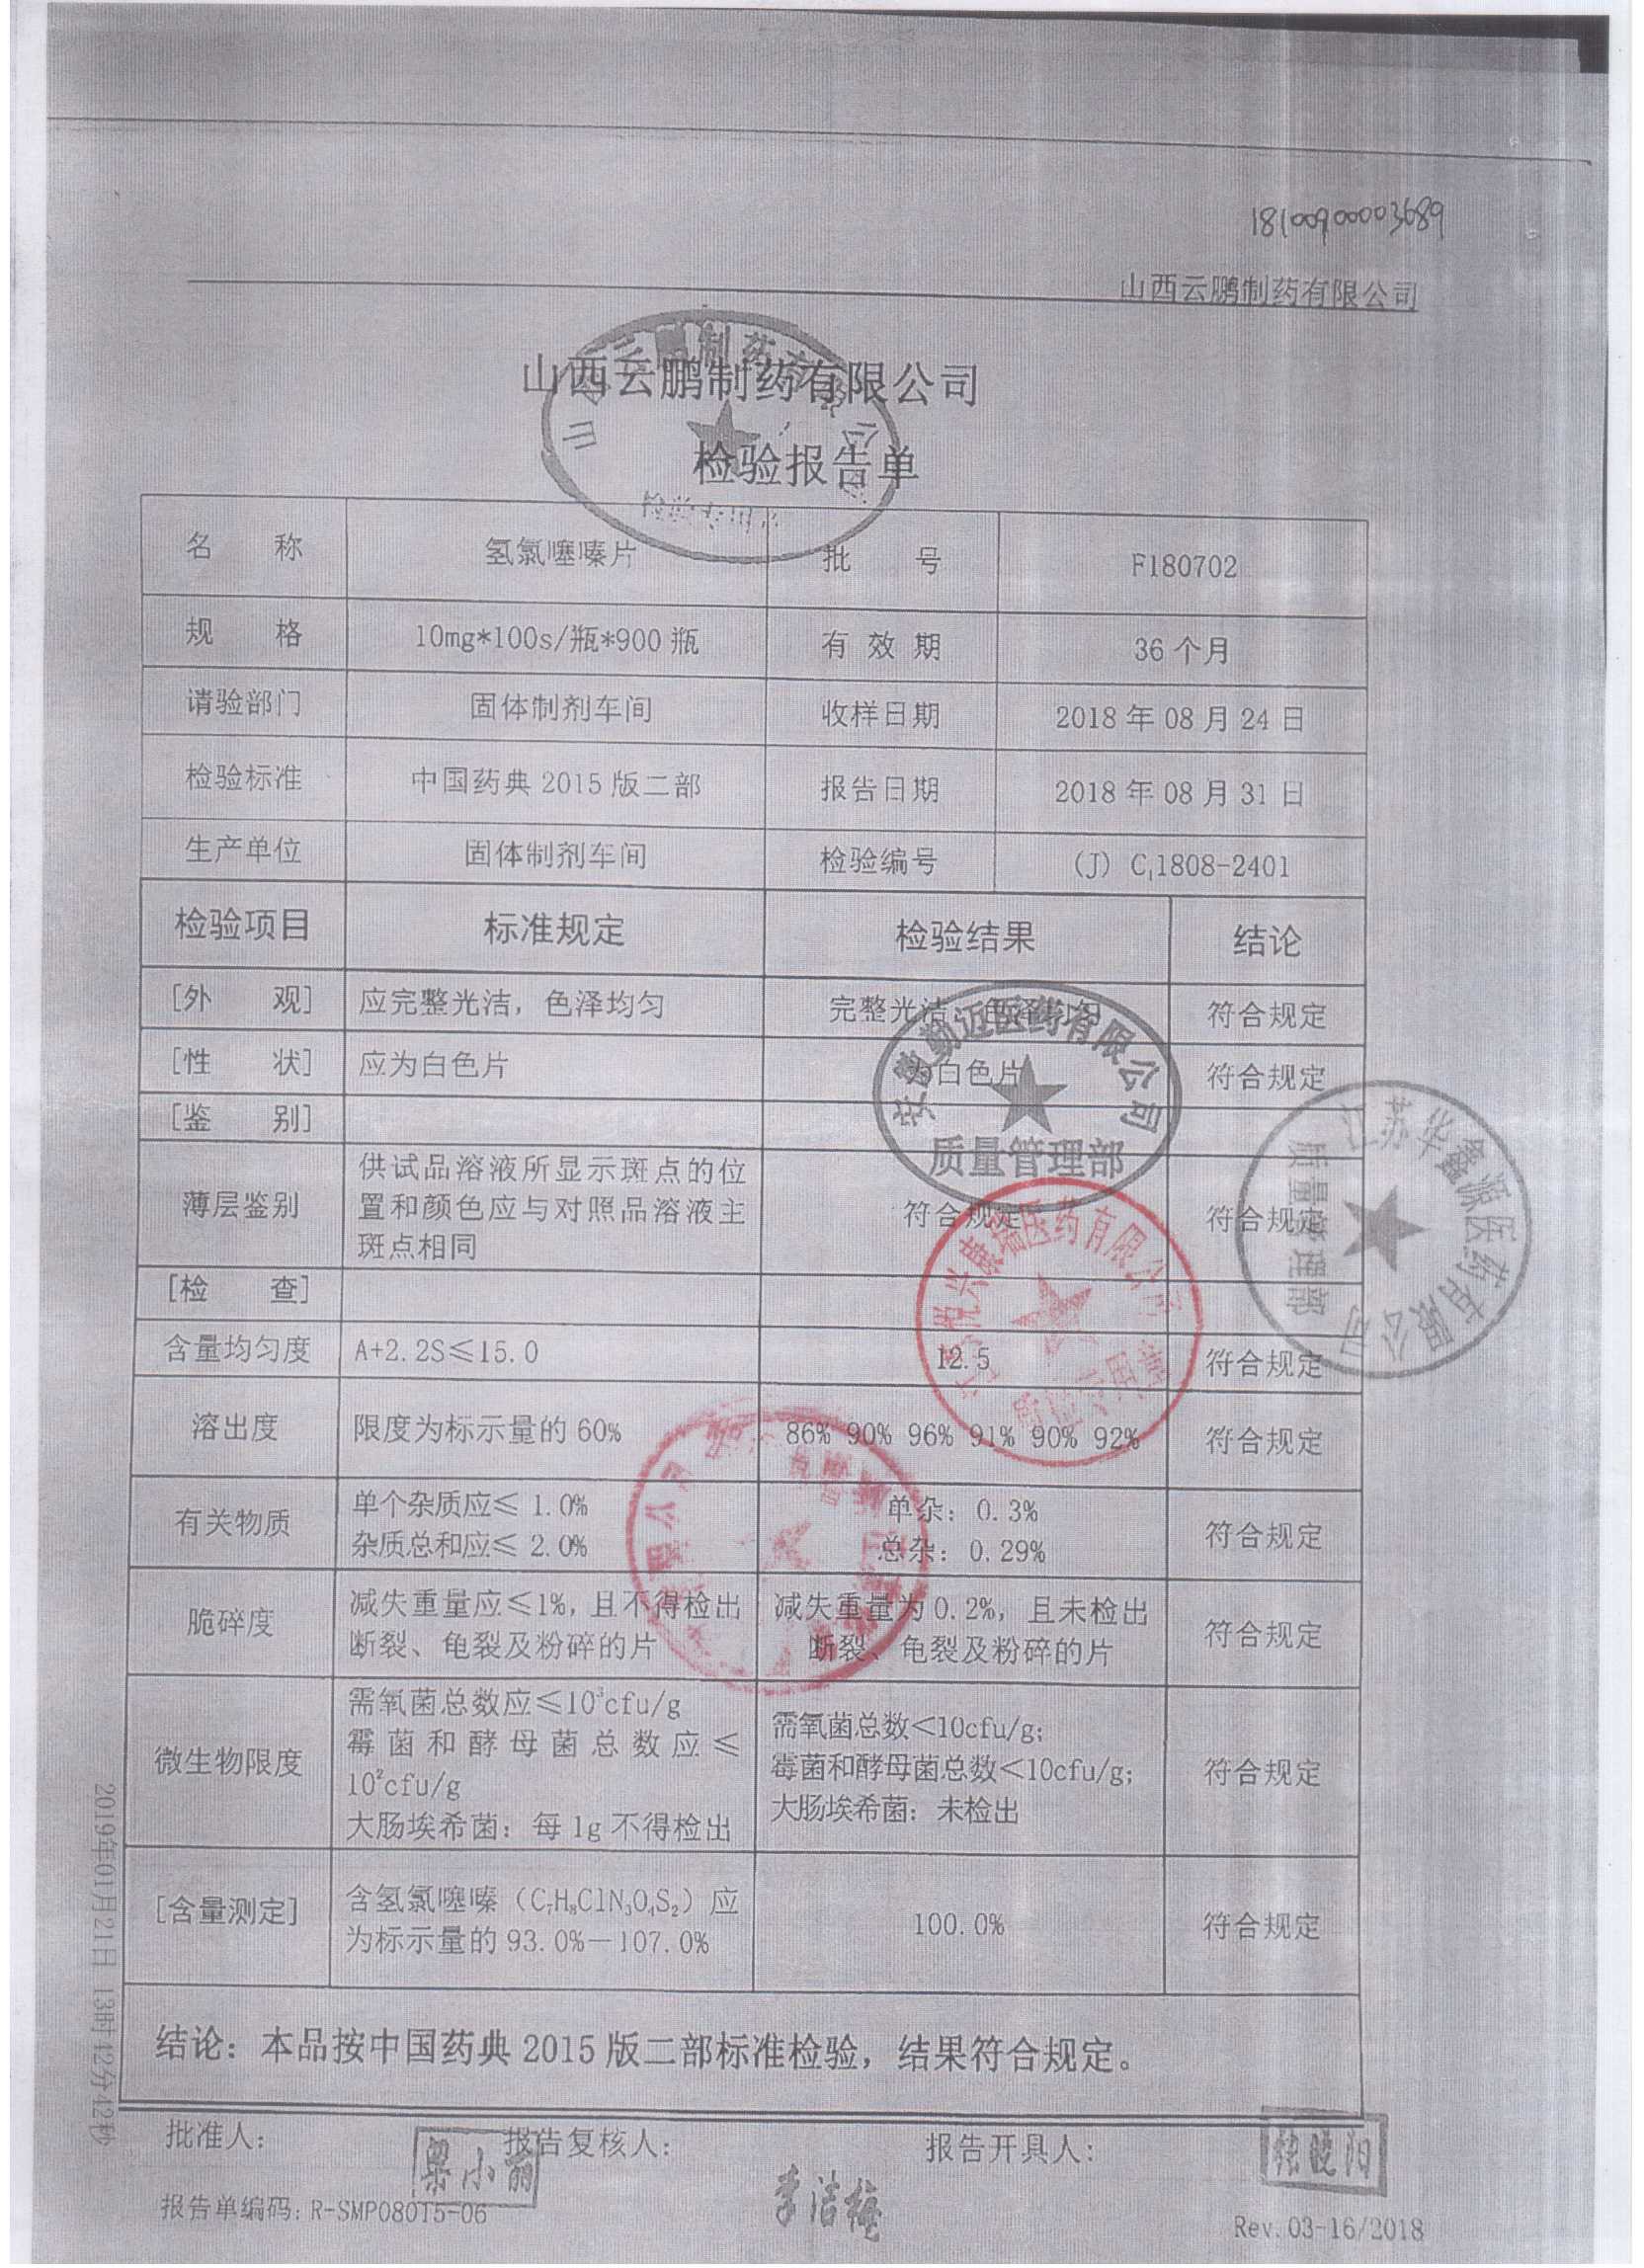 18100900003689
山西云鹏制药有限公司
山西云鹏制药有限公司
检验报告单
名 称 氢氯噻嗪片 批 号 F180702
规 格 10mg*100s/瓶*900 瓶 有 效 期 36 个月
请验部门 固体制剂车间 收样日期 2018 年 08 月 24 日
检验标准 中国药典 2015 版二部 报告日期 2018 年 08 月 31 日
生产单位 固体制剂车间 检验编号 (J) C₁1808-2401
检验项目 标准规定 检验结果 结论
[外 观] 应完整光洁，色泽均匀 完整光洁，色泽均匀 符合规定
[性 状] 应为白色片 为白色片 符合规定
[鉴 别]
薄层鉴别 供试品溶液所显示斑点的位 符合规定 符合规定
置和颜色应与对照品溶液主
斑点相同
[检 查]
含量均匀度 A+2.2S≤15.0 12.5 符合规定
溶出度 限度为标示量的 60% 86% 90% 96% 91% 90% 92% 符合规定
有关物质 单个杂质应≤ 1.0% 单杂：0.3% 符合规定
杂质总和应≤ 2.0% 总杂：0.29%
脆碎度 减失重量应≤1%，且不得检出 减失重量为 0.2%，且未检出 符合规定
断裂、龟裂及粉碎的片 断裂、龟裂及粉碎的片
微生物限度 需氧菌总数应≤10³cfu/g 需氧菌总数＜10cfu/g； 符合规定
霉菌和酵母菌总数应≤ 霉菌和酵母菌总数＜10cfu/g；
10²cfu/g 大肠埃希菌：未检出
大肠埃希菌：每 1g 不得检出
[含量测定] 含氢氯噻嗪（C₇H₈ClN₃O₄S₂）应 100.0% 符合规定
为标示量的 93.0%－107.0%
结论：本品按中国药典 2015 版二部标准检验，结果符合规定。
批准人： 梁小丽 报告复核人： 李洁梅 报告开具人： 张晓阳
报告单编码：R-SMP08015-06
Rev.03-16/2018
2019年01月21日 13时42分42秒
安徽勤迈医药有限公司
质量管理部
江苏华鑫源医药有限公司
质量管理部
兴康瑞医药有限公司